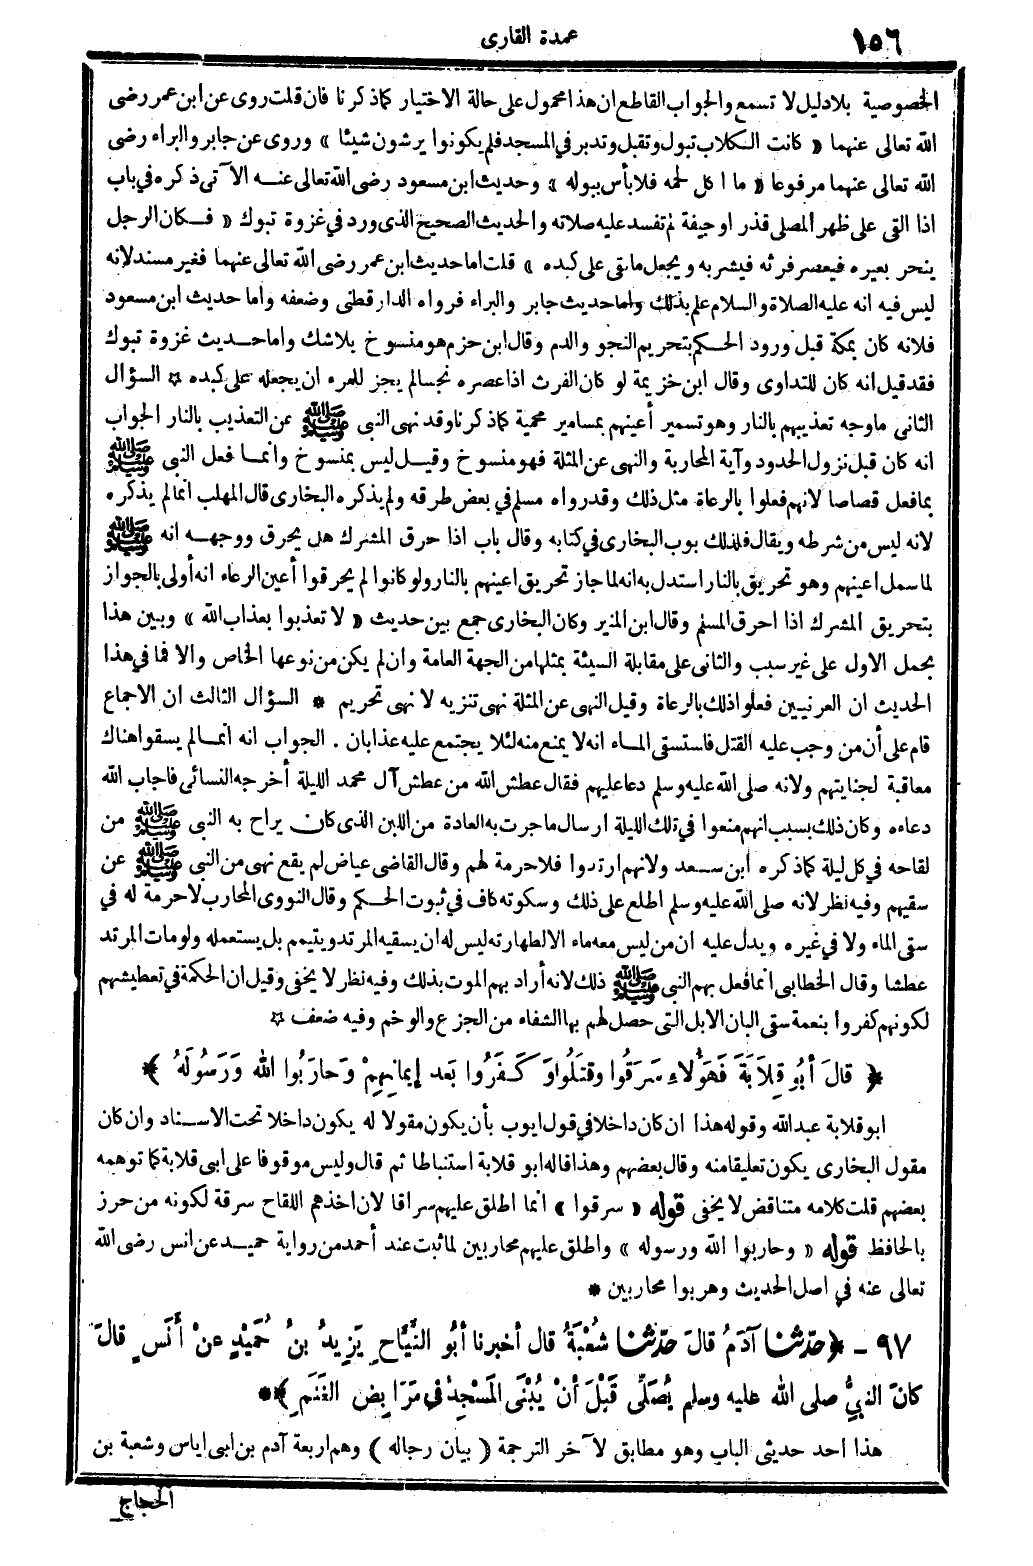 ١٥٦
عمدة القارى
الخصوصية بلا دليل لا تسمع والجواب القاطع ان هذا محمول على حالة الاختيار كما ذكرنا فان قلت روى عن ابن عمر رضى
الله تعالى عنهما « كانت الكلاب تبول وتقبل وتدبر فى المسجد فلم يكونوا يرشون شيئا » وروى عن جابر والبراء رضى
الله تعالى عنهما مرفوعا « ما اكل لحمه فلا بأس ببوله » وحديث ابن مسعود رضى الله تعالى عنه الآتى ذكره فى باب
اذا القى على ظهر المصلى قذر او جيفة لم تفسد عليه صلاته والحديث الصحيح الذى ورد فى غزوة تبوك « فكان الرجل
ينحر بعيره فيعصر فرثه فيشربه ويجعل ما بقى على كبده » قلت اما حديث ابن عمر رضى الله تعالى عنهما فغير مسند لانه
ليس فيه انه عليه الصلاة والسلام علم بذلك واما حديث جابر والبراء فرواه الدارقطنى وضعفه واما حديث ابن مسعود
فلانه كان بمكة قبل ورود الحكم بتحريم النجو والدم وقال ابن حزم هو منسوخ بلا شك واما حديث غزوة تبوك
فقد قيل انه كان للتداوى وقال ابن خزيمة لو كان الفرث اذا عصره نجسا لم يجز للمرء ان يجعله على كبده ۞ السؤال
الثانى ما وجه تعذيبهم بالنار وهو تسمير أعينهم بمسامير محمية كما ذكرنا وقد نهى النبى ﷺ عن التعذيب بالنار الجواب
انه كان قبل نزول الحدود وآية المحاربة والنهى عن المثلة فهو منسوخ وقيل ليس بمنسوخ وانما فعل النبى ﷺ
بما فعل قصاصا لانهم فعلوا بالرعاة مثل ذلك وقد رواه مسلم فى بعض طرقه ولم يذكره البخارى قال المهلب انما لم يذكره
لانه ليس من شرطه ويقال فلذلك بوب البخارى فى كتابه وقال باب اذا حرق المشرك هل يحرق ووجهه انه ﷺ
لما سمل اعينهم وهو تحريق بالنار استدل به انه لما جاز تحريق اعينهم بالنار ولو كانوا لم يحرقوا أعين الرعاء انه أولى بالجواز
بتحريق المشرك اذا احرق المسلم وقال ابن المنير وكان البخارى جمع بين حديث « لا تعذبوا بعذاب الله » وبين هذا
بحمل الاول على غير سبب والثانى على مقابلة السيئة بمثلها من الجهة العامة وان لم يكن من نوعها الخاص والا فما فى هذا
الحديث ان العرنيين فعلوا ذلك بالرعاة وقيل النهى عن المثلة نهى تنزيه لا نهى تحريم * السؤال الثالث ان الاجماع
قام على أن من وجب عليه القتل فاستسقى الماء انه لا يمنع منه لئلا يجتمع عليه عذابان . الجواب انه انما لم يسقوا هناك
معاقبة لجنايتهم ولانه صلى الله عليه وسلم دعا عليهم فقال عطش الله من عطش آل محمد الليلة أخرجه النسائى فاجاب الله
دعاءه وكان ذلك بسبب انهم منعوا فى تلك الليلة ارسال ما جرت به العادة من اللبن الذى كان يراح به النبى ﷺ من
لقاحه فى كل ليلة كما ذكره ابن سعد ولانهم ارتدوا فلا حرمة لهم وقال القاضى عياض لم يقع نهى من النبى ﷺ عن
سقيهم وفيه نظر لانه صلى الله عليه وسلم اطلع على ذلك وسكوته كاف فى ثبوت الحكم وقال النووى المحارب لا حرمة له فى
سقى الماء ولا فى غيره ويدل عليه ان من ليس معه ماء الا لطهارته ليس له ان يسقيه المرتد ويتيمم بل يستعمله ولو مات المرتد
عطشا وقال الخطابى انما فعل بهم النبى ﷺ ذلك لانه أراد بهم الموت بذلك وفيه نظر لا يخفى وقيل ان الحكمة فى تعطيشهم
لكونهم كفروا بنعمة سقى البان الابل التى حصل لهم بها الشفاء من الجزع والوخم وفيه ضعف ۞
﴿ قالَ أبُو قِلاَبَةَ فَهَؤُلاءِ سَرَقُوا وقَتَلُوا وَ كَفَرُوا بَعد إيمانِهِمْ وَحارَبُوا اللهَ وَرَسُولَهُ ﴾
ابو قلابة عبد الله وقوله هذا ان كان داخلا فى قول ايوب بأن يكون مقولا له يكون داخلا تحت الاسناد وان كان
مقول البخارى يكون تعليقا منه وقال بعضهم وهذا قاله ابو قلابة استنباطا ثم قال وليس موقوفا على ابى قلابة كما توهمه
بعضهم قلت كلامه متناقض لا يخفى قوله « سرقوا » انما اطلق عليهم سراقا لان اخذهم اللقاح سرقة لكونه من حرز
بالحافظ قوله « وحاربوا الله ورسوله » واطلق عليهم محاربين لما ثبت عند أحمد من رواية حميد عن انس رضى الله
تعالى عنه فى اصل الحديث وهربوا محاربين *
٩٧ - ﴿ حدّثنا آدَمُ قالَ حدّثنا شُعْبَةُ قال أخبرنا أبُو التَّيَّاحِ يَزِيدُ بنُ حُمَيْدٍ عنْ أَنَسٍ قالَ
كانَ النبيُّ صلى الله عليه وسلم يُصَلِّى قَبْلَ أنْ يُبْنَى المَسْجِدُ فى مَرَابِضِ الغَنَمِ ﴾ *
هذا احد حديثى الباب وهو مطابق لآخر الترجمة ( بيان رجاله ) وهم اربعة آدم بن ابى اياس وشعبة بن
الحجاج